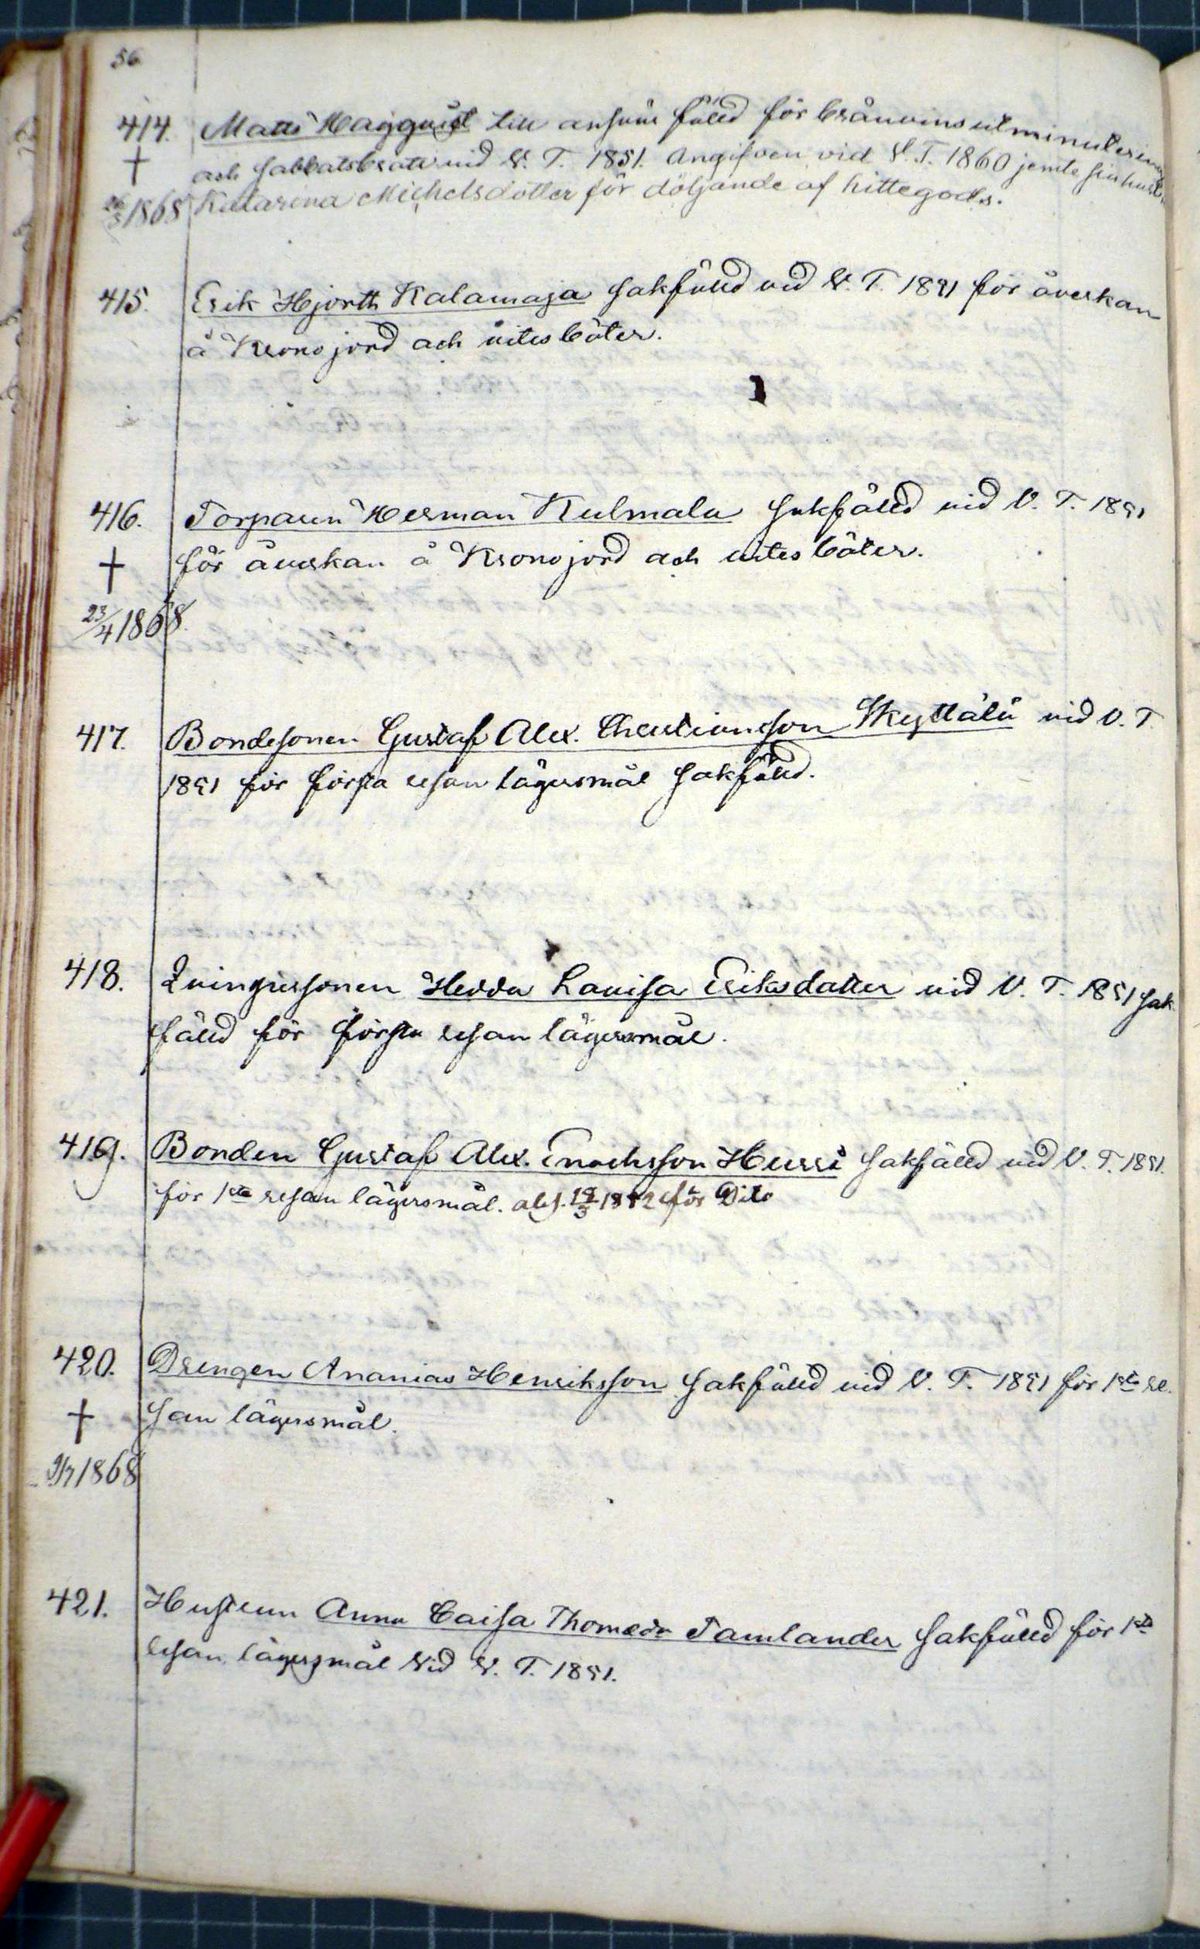 56.
414. Matts Haggquist till ansvar fäld för bränvinsutminutering
† och sabbatsbrott vid V. T. 1851. Angifven vid V. T. 1860 jemte sin hustru
26/5 1868 Katarina Michelsdotter för döljande af hittegods.
415. Erik Hjorth Kalamaja sakfäld vid V. T. 1851 för åverkan
å Krono jord och vites böter.
416. Torparen Herman Kulmala sakfäld vid V. T. 1851
† för åverkan å Krono jord och vites böter.
23/4 1868.
417. Bondesonen Gustaf Alex. Christiansson Skyttälä vid V. T
1851 för första resan lägersmål sakfäld.
418. Qvinspersonen Hedda Lovisa Eriksdotter vid V. T. 1851 sak
fäld för första resan lägersmål.
419. Bonden Gustaf Alex. Enochsson Hurri sakfäld vid V. T. 1851.
för 1sta resan lägersmål. abs. 18/3 1852 för Dito
420. Drengen Ananias Henriksson sakfäld vid V. T. 1851 för 1sta re-
† san lägersmål.
9/7 1868
421. Hustrun Anna Caisa Thomædr Tamlander sakfäld för 1sta
resan lägersmål vid V. T. 1851.